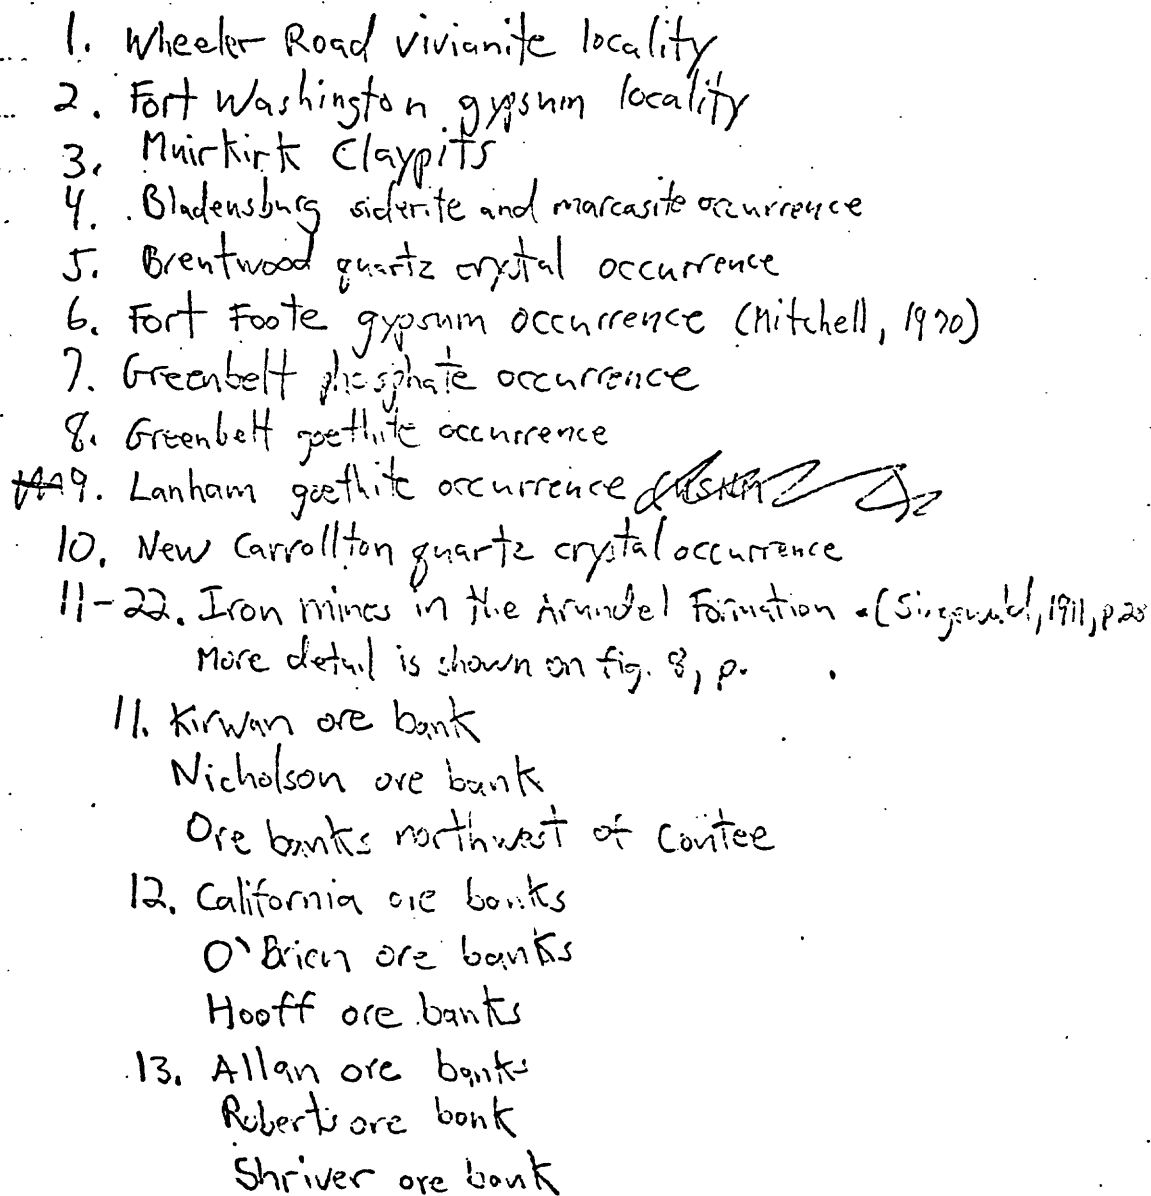 1. Wheeler Road vivianite locality
2. Fort Washington gypsum locality
3. Muirkirk Claypits
4. Bladensburg siderite and marcasite occurrence
5. Brentwood quartz crystal occurrence
6. Fort Foote gypsum occurrence (Mitchell, 1970)
7. Greenbelt phosphate occurrence
8. Greenbelt goethite occurrence
9. Lanham goethite occurrence
10. New Carrollton quartz crystal occurrence
11-22. Iron mines in the Arundel Formation (Singewald, 1911, p
More detail is shown on fig. 8, p. .
11. Kirwan ore bank
Nicholson ore bank
Ore banks northwest of Contee
12. California ore banks
O'Brien ore banks
Hooff ore banks
13. Allan ore banks
Roberts ore bank
Shriver ore bank